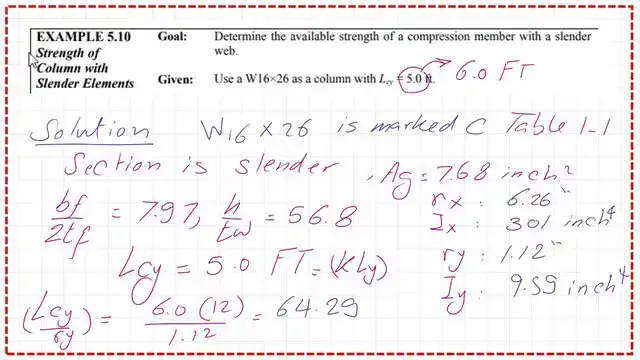 EXAMPLE 5.10 Goal: Determine the available strength of a compression member with a slender
Strength of web.
Column with
Slender Elements Given: Use a W16×26 as a column with Lcy = 5.0 ft. 6.0 FT
Solution W16 x 26 is marked C Table 1-1
Section is slender, Ag = 7.68 inch²
bf/2tf = 7.97, h/tw = 56.8
rx : 6.26"
Ix : 301 inch⁴
Lcy = 5.0 FT = (KLy)
ry : 1.12"
Iy : 9.59 inch⁴
(Lcy/ry) = 6.0 (12)/1.12 = 64.29